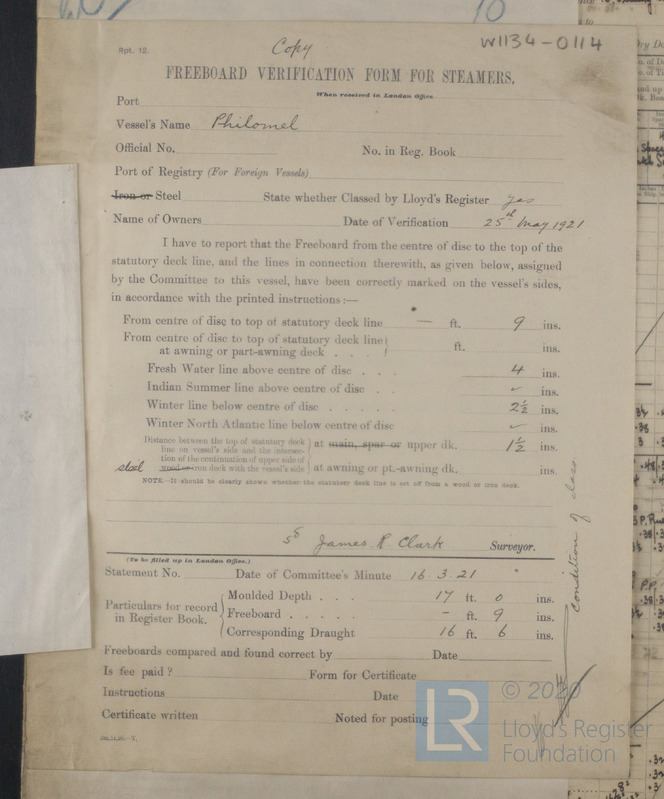 10
Rpt. 12.
Copy
W1134-0114
FREEBOARD VERIFICATION FORM FOR STEAMERS.
When received in London Office
Port
Vessel's Name Philomel
Official No. No. in Reg. Book
Port of Registry (For Foreign Vessels)
Iron or Steel State whether Classed by Lloyd's Register yes
Name of Owners Date of Verification 25th May 1921
I have to report that the Freeboard from the centre of disc to the top of the
statutory deck line, and the lines in connection therewith, as given below, assigned
by the Committee to this vessel, have been correctly marked on the vessel's sides,
in accordance with the printed instructions:—
From centre of disc to top of statutory deck line — ft. 9 ins.
From centre of disc to top of statutory deck line
at awning or part-awning deck . . . ft. ins.
Fresh Water line above centre of disc . . 4 ins.
Indian Summer line above centre of disc . . ✓ ins.
Winter line below centre of disc . . . . . 2½ ins.
Winter North Atlantic line below centre of disc ✓ ins.
Distance between the top of statutory deck
line on vessel's side and the intersec-
tion of the continuation of upper side of
steel wood or iron deck with the vessel's side
at main, spar or upper dk. 1½ ins.
at awning or pt.-awning dk. ins.
NOTE.—It should be clearly shown whether the statutory deck line is set off from a wood or iron deck.
sd James R Clark Surveyor.
(To be filled up in London Office.)
Statement No. Date of Committee's Minute 16.3.21
Particulars for record
in Register Book.
Moulded Depth . . . 17 ft. 0 ins.
Freeboard . . . . . - ft. 9 ins.
Corresponding Draught 16 ft. 6 ins.
Freeboards compared and found correct by Date
Is fee paid? Form for Certificate
Instructions Date
Certificate written Noted for posting
condition of class
LR
© 2020
Lloyd's Register
Foundation